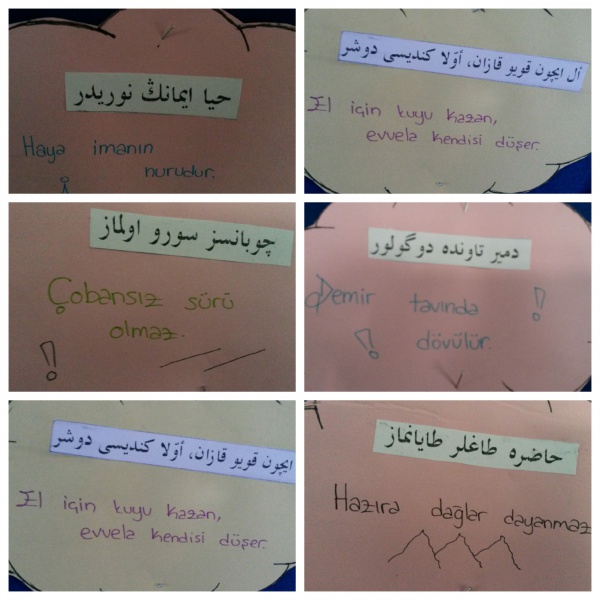 حيا ايمانڭ نوريدر
Haya imanın
nurudur.
أل ايچون قويو قازان، أوّلا كنديسى دوشر
El için kuyu kazan,
evvela kendisi düşer.
چوبانسز سورو اولماز
Çobansız sürü
olmaz.
دمير تاونده دوگولور
Demir tavında
dövülür.
ايچون قويو قازان، أوّلا كنديسى دوشر
El için kuyu kazan,
evvela kendisi düşer.
حاضره طاغلر طايانماز
Hazıra dağlar dayanmaz